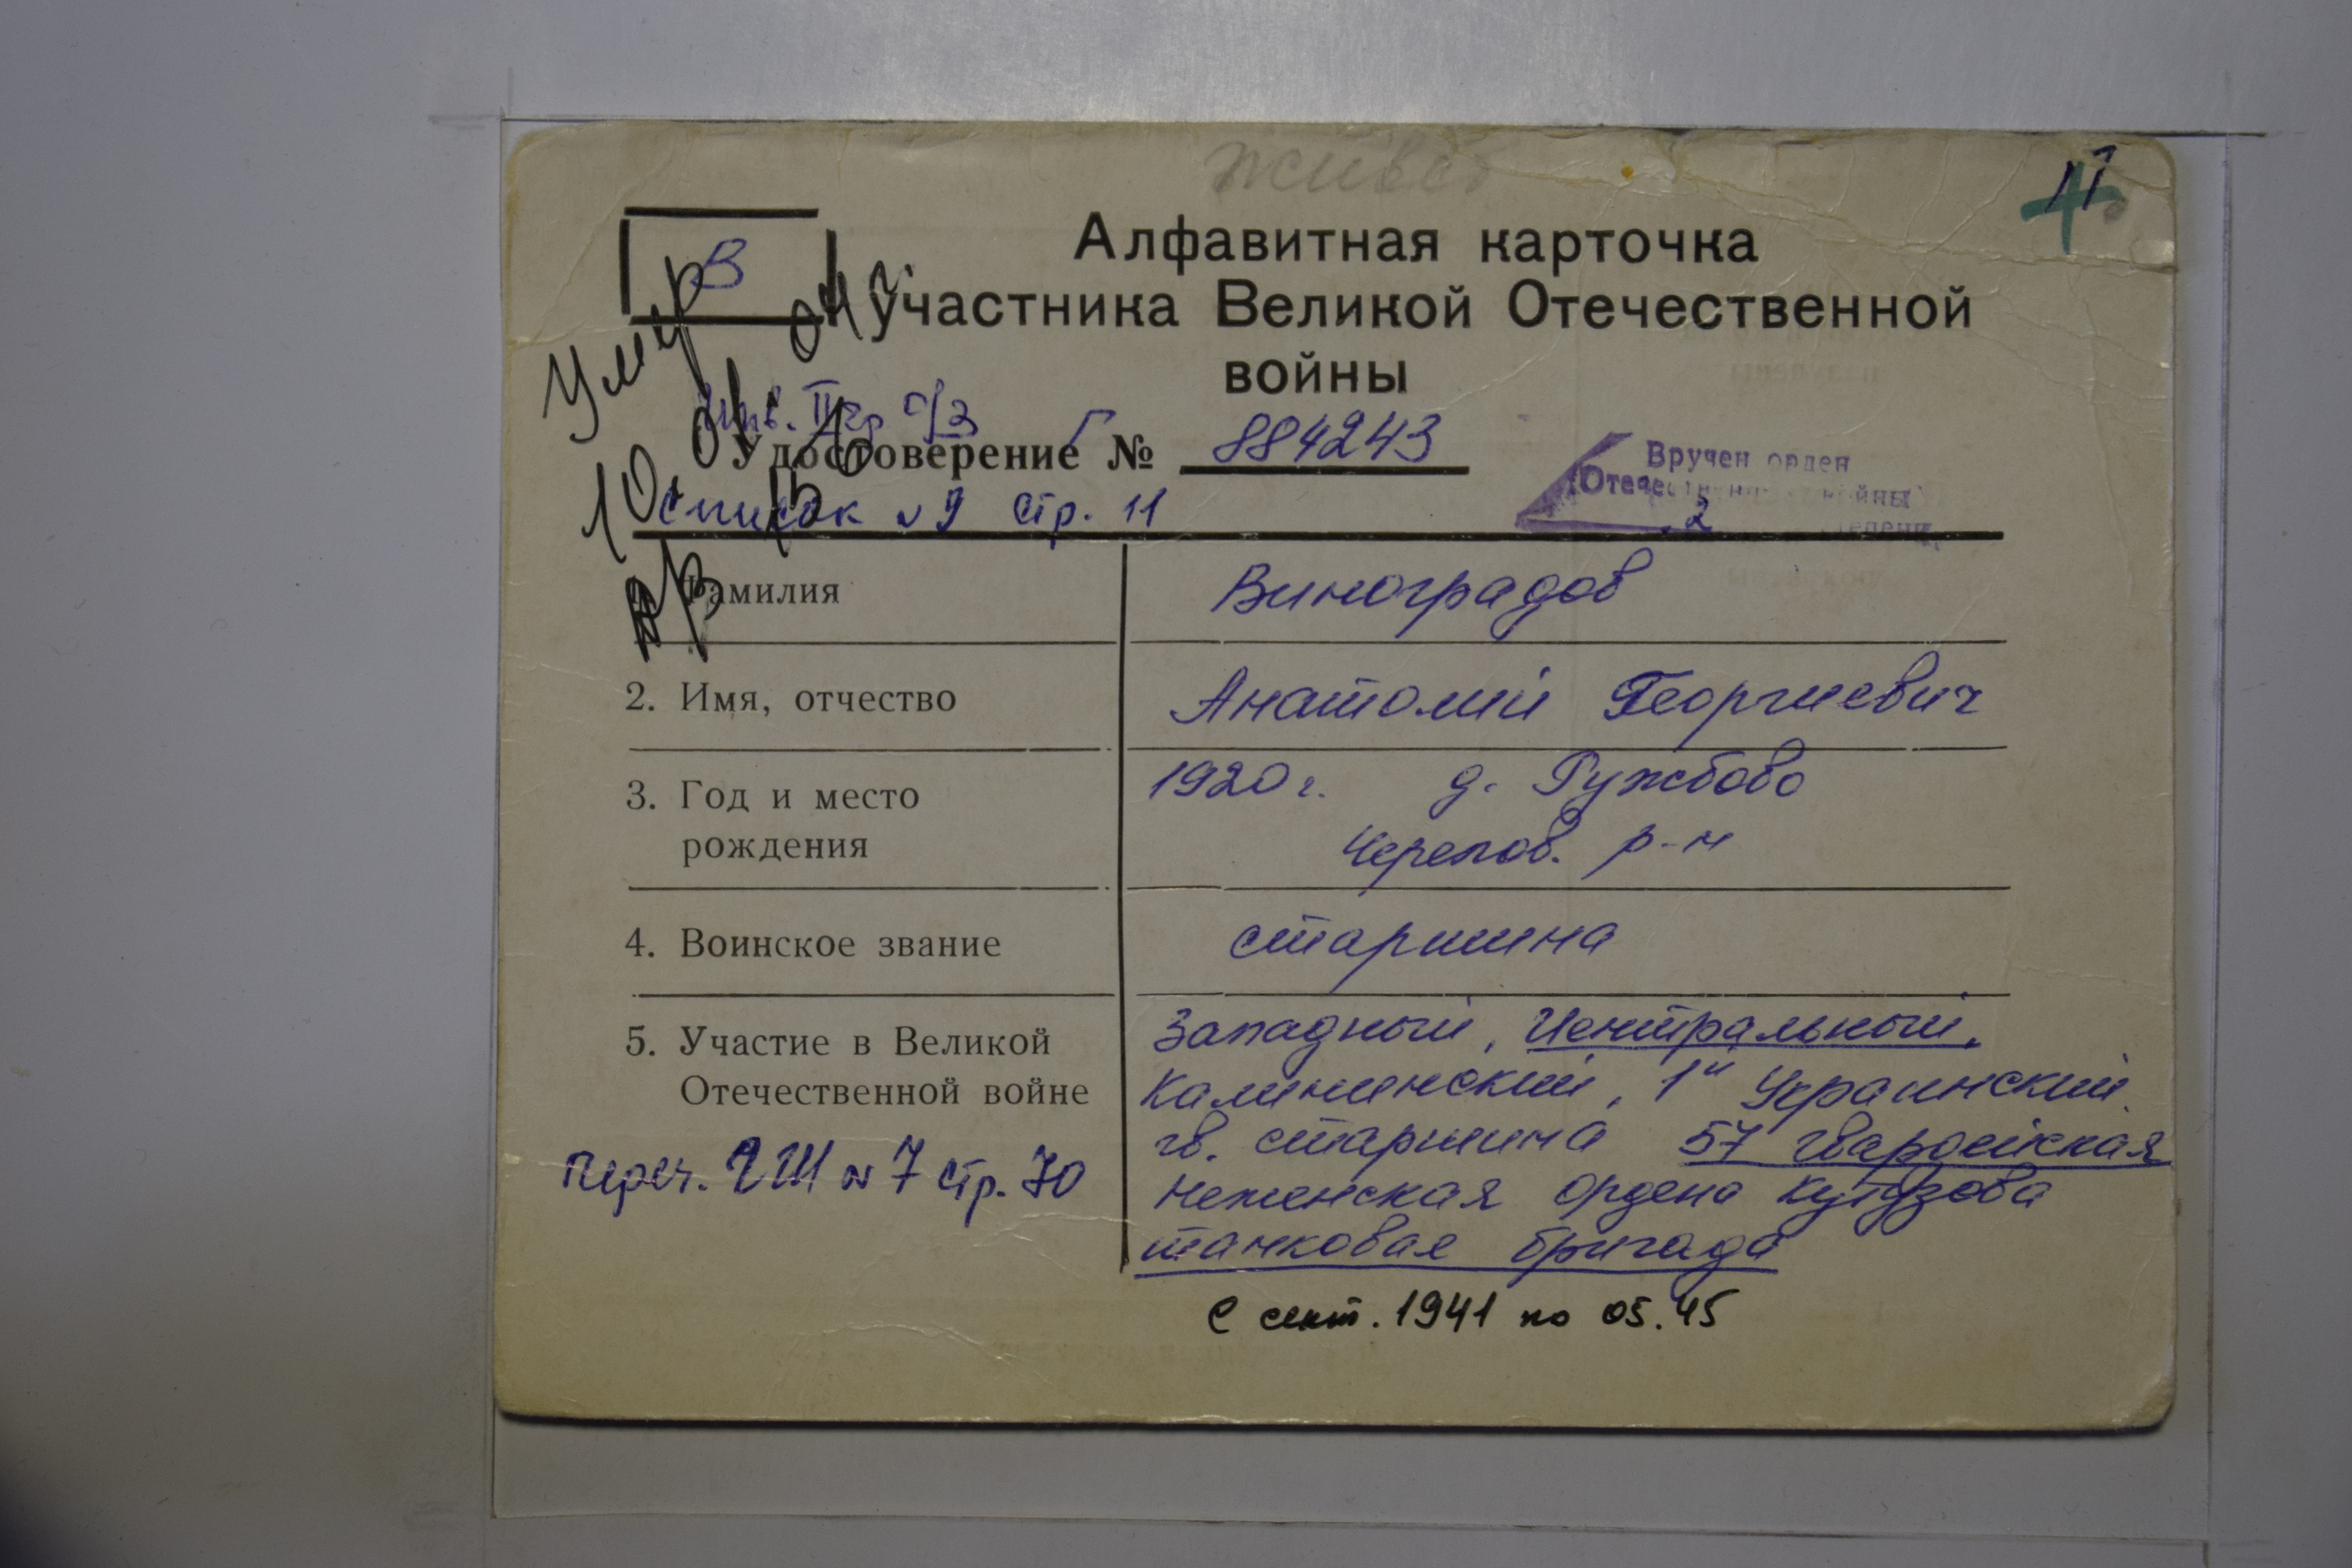 живет
Алфавитная карточка
В
участника Великой Отечественной
войны
Умер
инв. II гр
Удостоверение № 884243
Вручен орден
Отечественной войны
2 степени
Список № 9 стр. 11
Фамилия Виноградов
2. Имя, отчество Анатолий Георгиевич
3. Год и место 1920 г. д. Ружбово
рождения Черепов. р-н
4. Воинское звание старшина
5. Участие в Великой Западный, Центральный,
Отечественной войне Калининский, 1й Украинский
гв. старшина 57 гвардейская
Переч. ГШ № 7 стр. 70 Неженская ордена Кутузова
танковая бригада
С сент. 1941 по 05.45